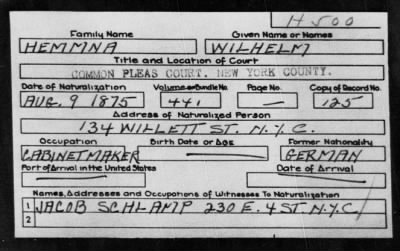 H 500
Family Name Given Name or Names
HEMMNA WILHELM
Title and Location of Court
COMMON PLEAS COURT. NEW YORK COUNTY.
Date of Naturalization Volume or Bundle No. Page No. Copy of Record No.
AUG. 9 1875 441 — 125
Address of Naturalized Person
134 WILLETT ST. N.Y.C.
Occupation Birth Date or Age Former Nationality
CABINETMAKER — GERMAN
Port of Arrival in the United States Date of Arrival
— —
Names, Addresses and Occupations of Witnesses To Naturalization
1 JACOB SCHLAMP 230 E. 4 ST. N.Y.C.
2